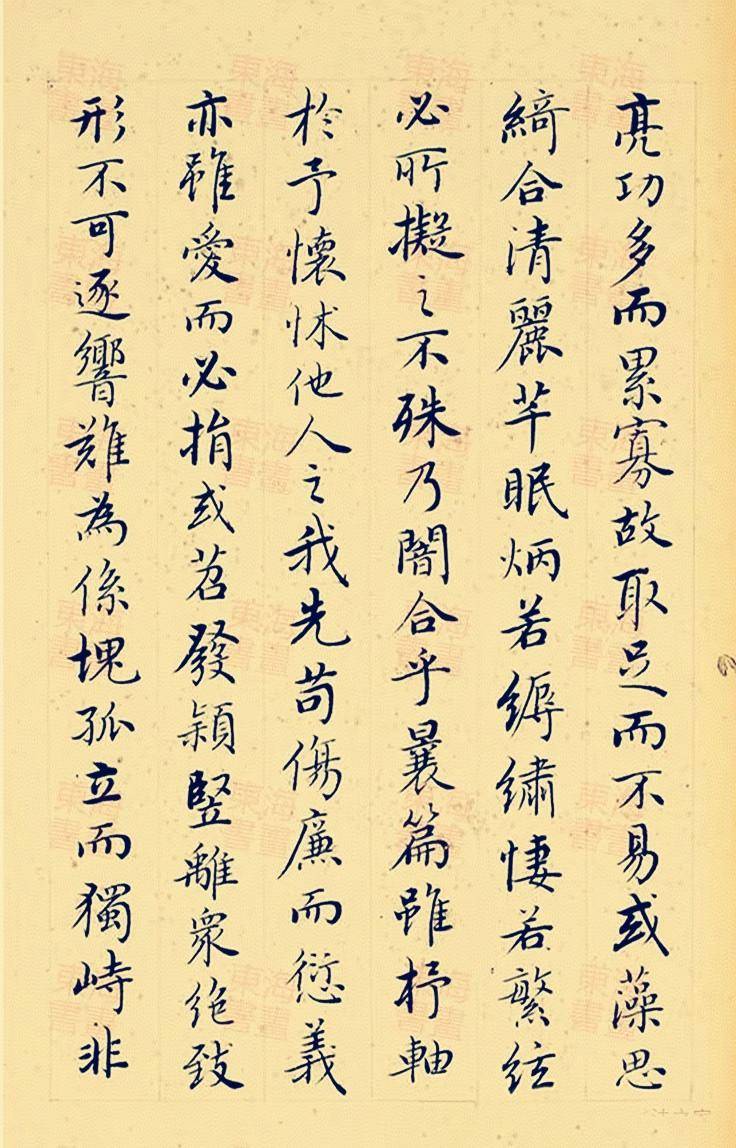 亮功多而累寡故取足而不易或藻思
綺合清麗芊眠炳若縟繡悽若繁絃
必所擬之不殊乃闇合乎曩篇雖杼軸
於予懷怵他人之我先苟傷廉而愆義
亦雖愛而必捐或苕發穎豎離衆絕致
形不可逐響難為係塊孤立而獨峙非